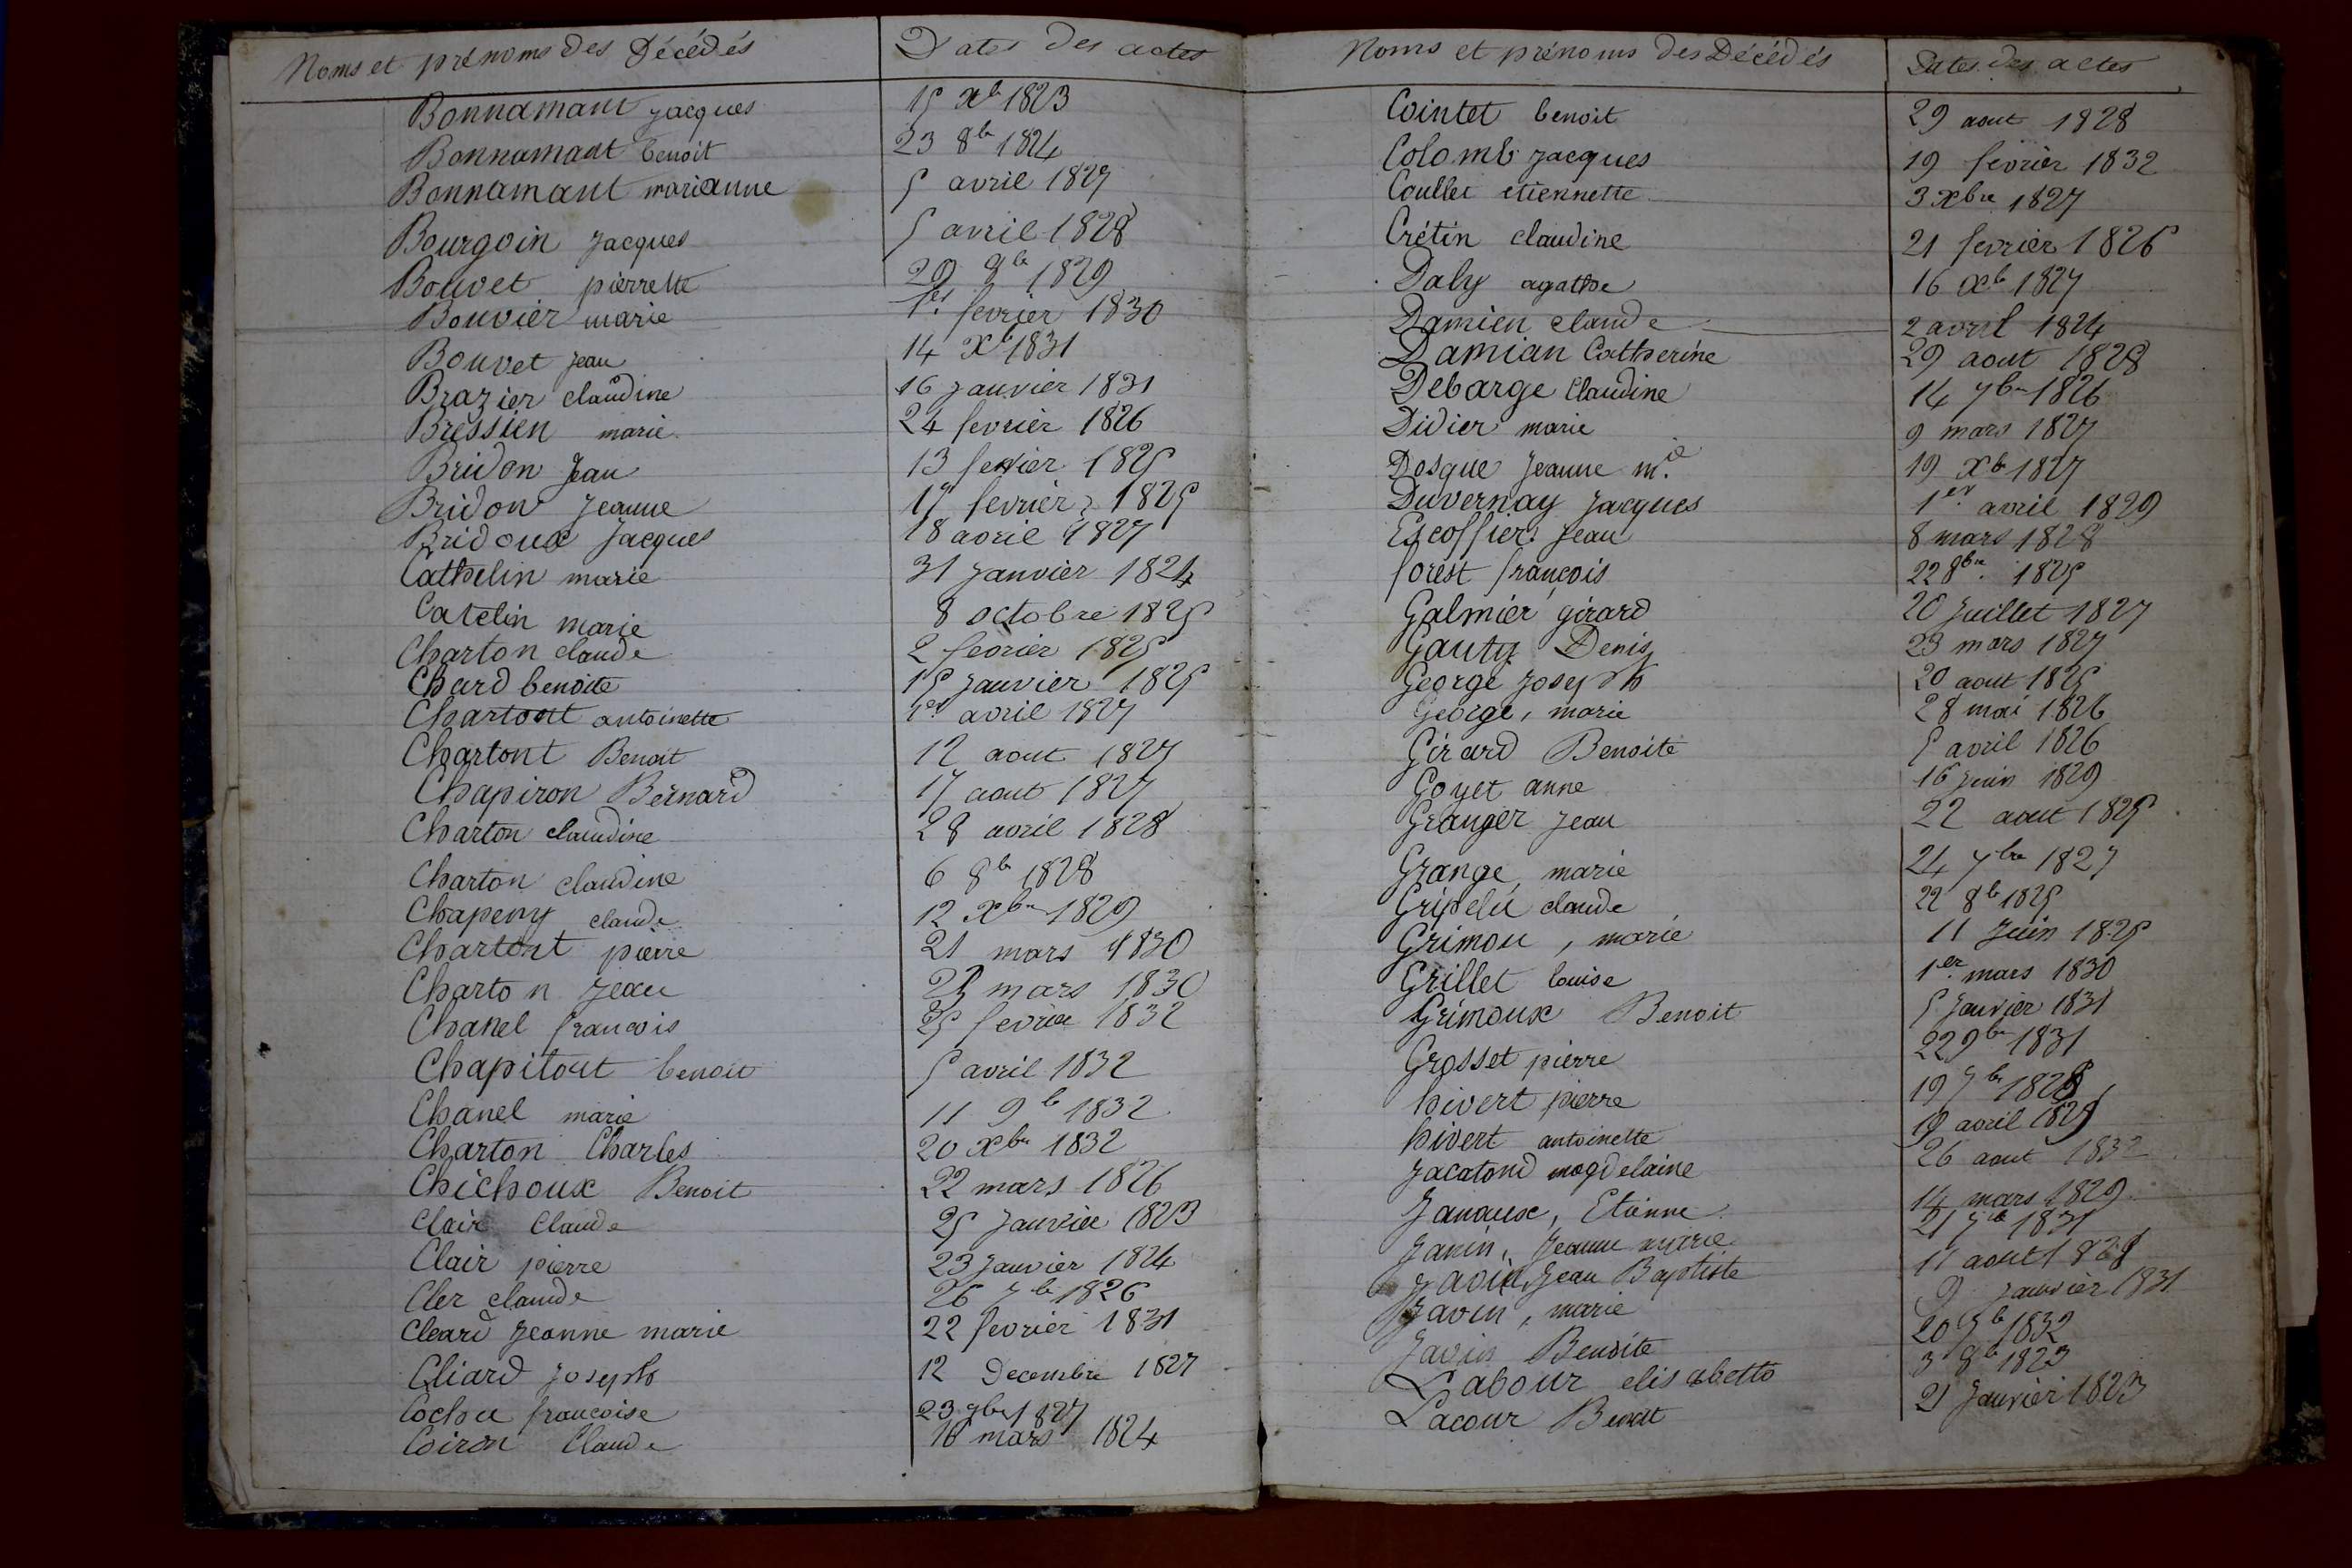 Noms et prénoms des Décédés Dates des actes
Bonnamant jacques 15 Xb 1823
Bonnamant benoit 23 8b 1824
Bonnamant marianne 5 avril 1827
Bourgoin jacques 5 avril 1828
Bouvet pierrette 29 8b 1829
Bouvier marie 1er fevrier 1830
Bouvet jean 14 Xb 1831
Brazier claudine 16 janvier 1831
Bressien marie 24 fevrier 1826
Bridon Jean 13 fevrier 1825
Bridon Jeanne 17 fevrier 1825
Bridoux Jacques 18 avril 1827
Cathelin marie 31 janvier 1824
Catelin marie 8 octobre 1825
Charton claude 2 fevrier 1825
Chard benoite 15 janvier 1825
Chartont antoinette 1er avril 1827
Chartont Benoit 12 aout 1827
Chapiron Bernard 17 aout 1827
Charton claudine 28 avril 1828
Charton claudine 6 8b 1828
Chapeny claude 12 Xbre 1829
Chartont pierre 21 mars 1830
Charton jean mars 1830
Chanel francois 25 fevrier 1832
Chapitout benoit 5 avril 1832
Chanel marie 11 9b 1832
Charton Charles 20 Xbre 1832
Chichoux Benoit 22 mars 1826
Clair Claude 25 Janvier 1823
Clair pierre 23 janvier 1824
Cler claude 26 7b 1826
Cleard jeanne marie 22 fevrier 1831
Cliard joseph 12 Decembre 1827
Cochu francoise 23 9bre 1827
Coiron Claude 16 mars 1824
Noms et prénoms des Décédés Dates des actes
Cointet benoit 29 aout 1828
Colomb jacques 19 fevrier 1832
Coullet etiennette 3 Xbre 1827
Crétin claudine 21 fevrier 1826
Daly agathe 16 Xb 1827
Damien claude 2 avril 1824
Damian Catherine 29 aout 1828
Debarge Claudine 14 7bre 1826
Didier marie 9 mars 1827
Dosque Jeanne m.ie 19 Xb 1827
Duvernay jacques 1er avril 1829
Escoffier Jean 8 mars 1828
forest françois 22 8bre 1825
Galmier girard 20 Juillet 1827
Gauty Denis 23 mars 1827
George joseph 20 aout 1825
George, marie 28 mai 1826
Girard Benoite 5 avril 1826
Goyet anne 16 juin 1829
Granger jean 22 aout 1825
Grange, marie 24 7bre 1827
Gripelu claude 22 8b 1825
Grimou, marie 11 Juin 1825
Grillet louise 1er mars 1830
Grimoux Benoit 5 Janvier 1831
Grosset pierre 22 9bre 1831
hivert pierre 19 7br 1828
hivert antoinette 19 avril
Jacatond magdelaine 26 aout 1832
Janaux, Etienne 14 mars 1829
Janin, Jeanne marie 21 1831
Javin Jean Baptiste 11 aout
Javin, marie 9 janvier 1831
Javin Benoite 20 1832
Labour elisabette 3 8b 1823
Lacour Benoit 21 Janvier 1823